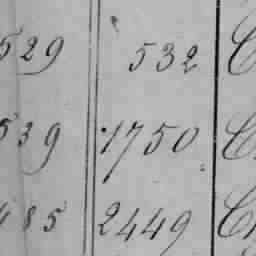 529 532 C
539 1750 C
485 2449 C